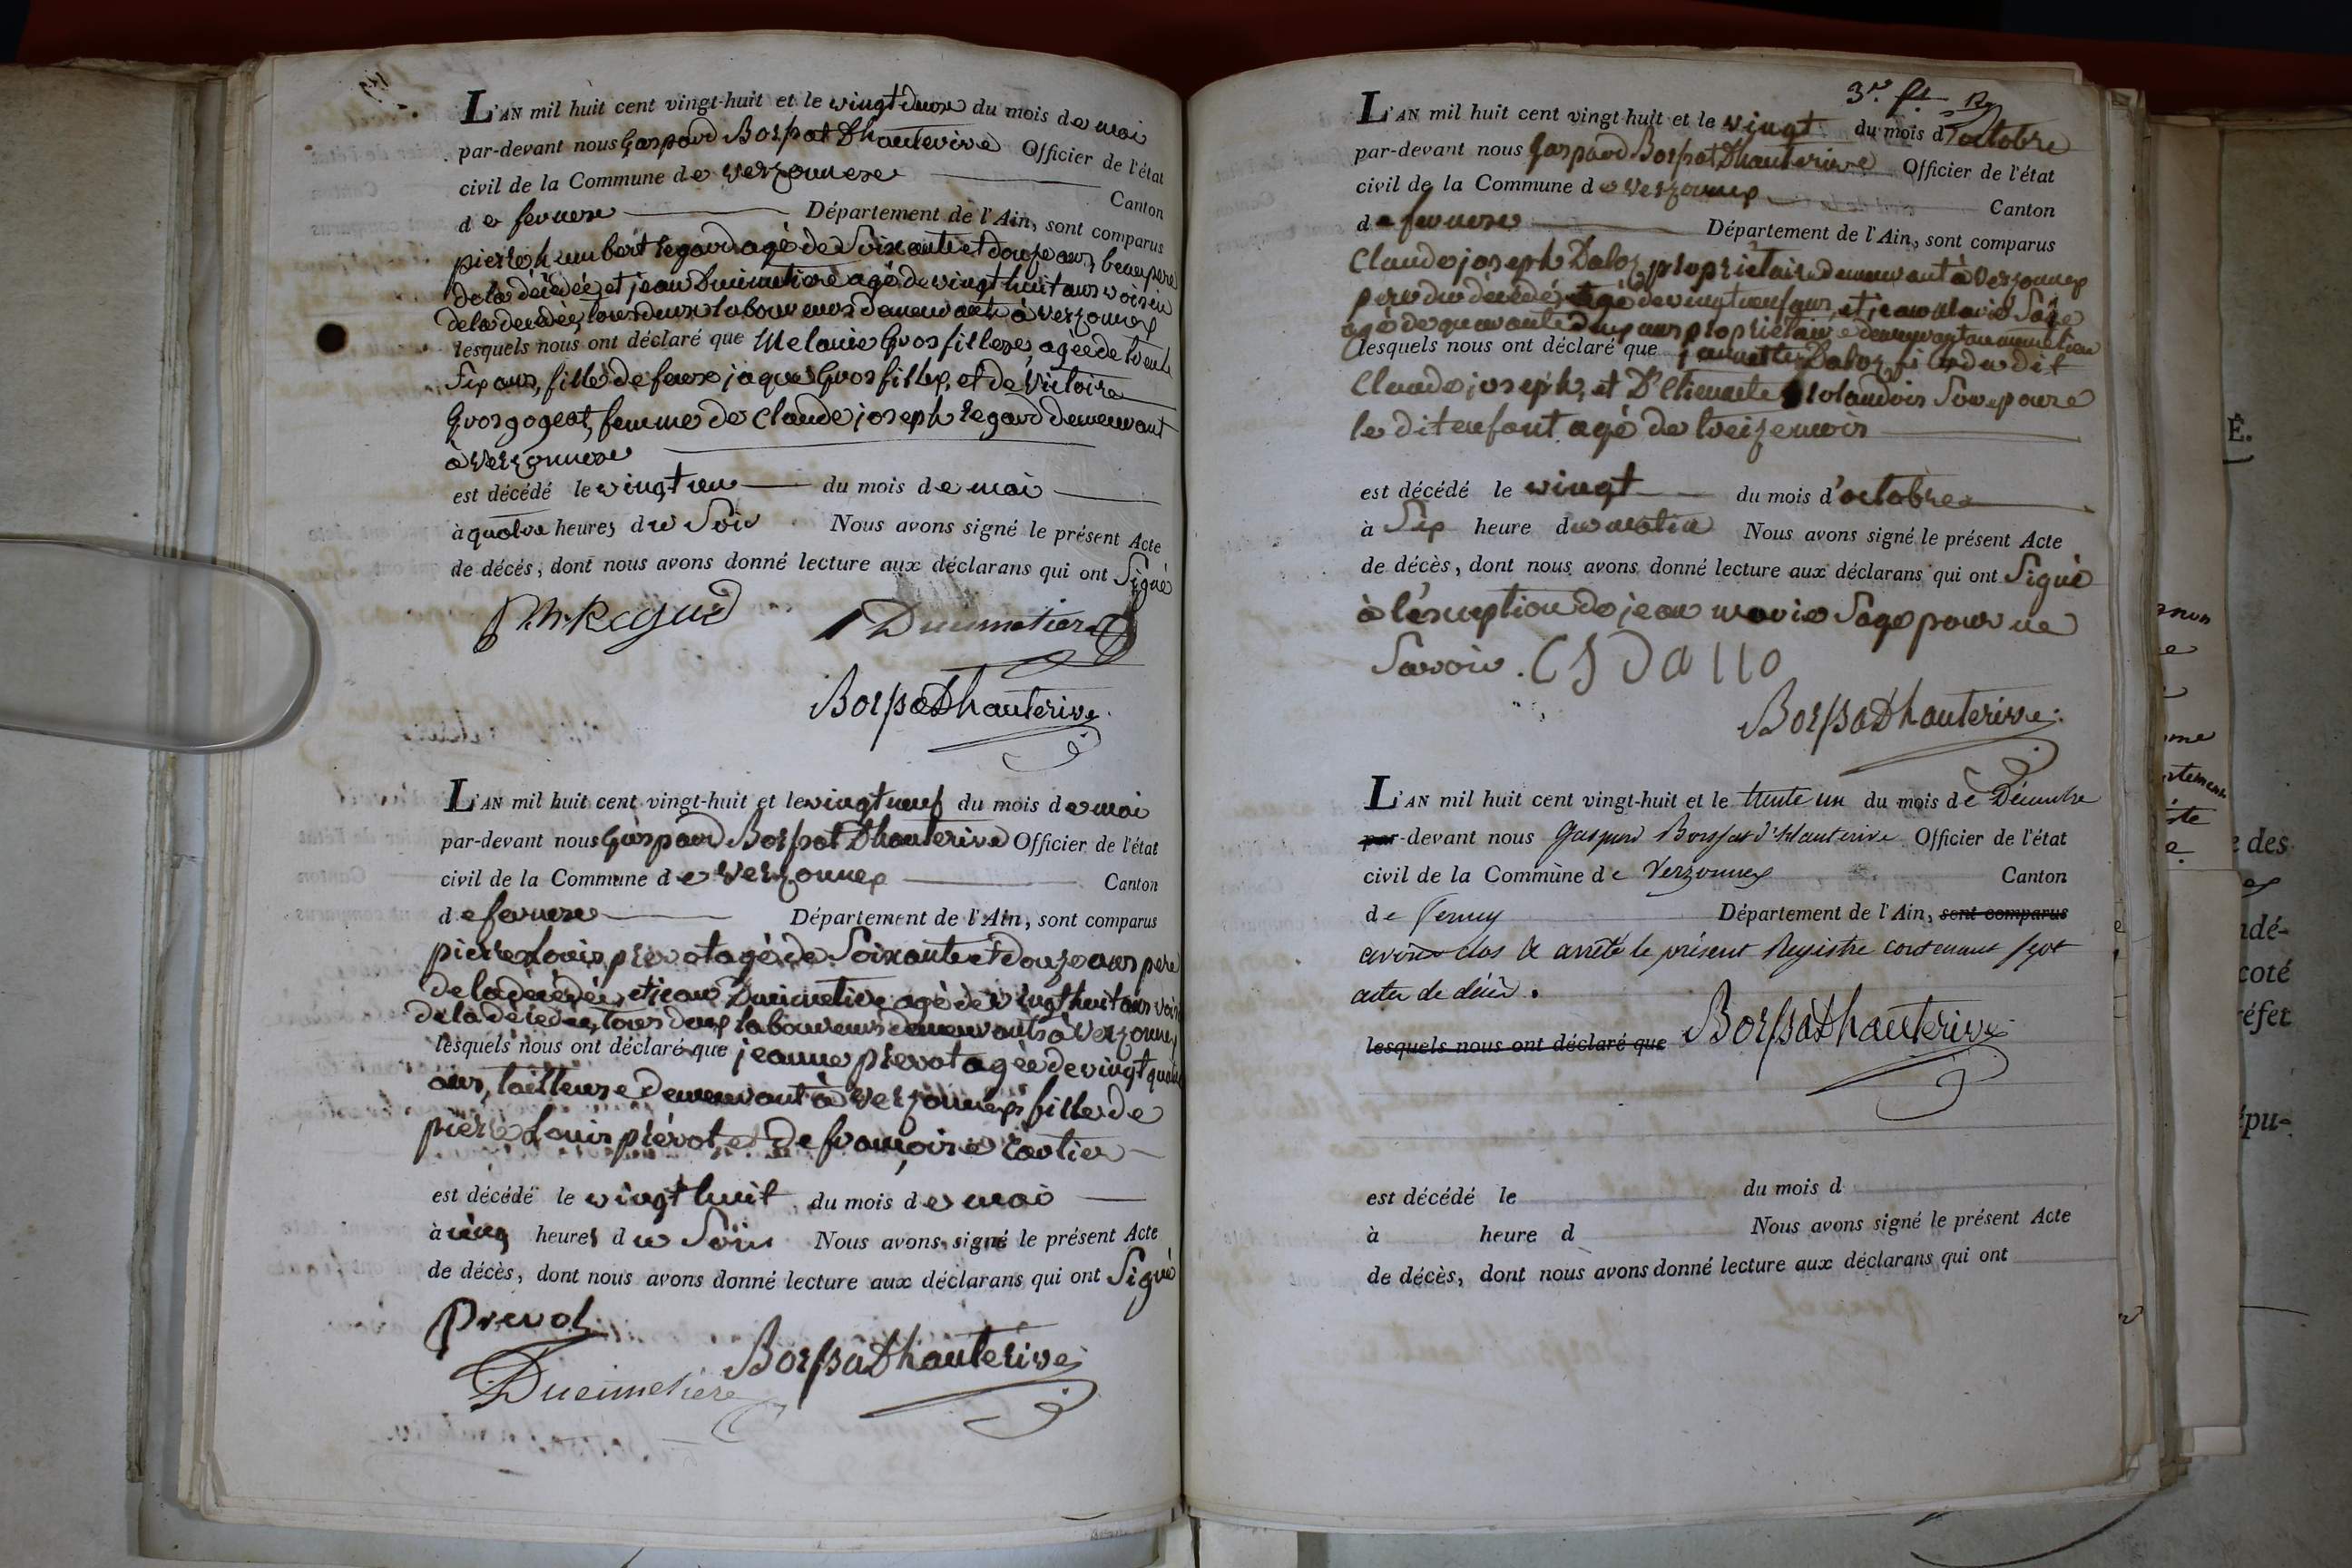 L'AN mil huit cent vingt-huit et le vingt deux du mois de mai
par-devant nous Gaspard Borssat Dhauterive Officier de l'état
civil de la Commune de Verzonnex Canton
de fernex Département de l'Ain, sont comparus
pierre humbert Regard agé de Soixante et douze ans, beaupere
de la décédée, et jean Ducimetiere agé de vingt huit ans voisin
de la décédée, tous deux laboureurs demeurants à verzonnex
lesquels nous ont déclaré que Melanie Grosfillex, agée de trente
Six ans, fille de feux jaque Grosfillex, et de Victoire
Grosgogeat, femme de Claude joseph Regard demeurant
à verzonnex
est décédé le vingt un du mois de mai
à quatre heures du Soir Nous avons signé le présent Acte
de décès, dont nous avons donné lecture aux déclarans qui ont Signé
phRegard Ducimetiere
BorssatDhauterive
L'AN mil huit cent vingt-huit et le vingt neuf du mois de mai
par-devant nous Gaspard Borssat Dhauterive Officier de l'état
civil de la Commune de Verzonnex Canton
de fernex Département de l'Ain, sont comparus
pierre Louis prevot agé de Soixante et douze ans pere
de la décédée, et jean Ducimetiere agé de vingt huit ans vois
de la décédée, tous deux laboureurs demeurants à Verzonnex
lesquels nous ont déclaré que jeanne prevot agée de vingt quatre
ans, tailleuse demeurant à Verzonnex fille de
pierre Louis prévot et de françoise
est décédé le vingt huit du mois de mai
à cinq heures du Soir Nous avons signé le présent Acte
de décès, dont nous avons donné lecture aux déclarans qui ont Signé
Prevot
BorssatDhauterive
Ducimetiere
3e ft
L'AN mil huit cent vingt-huit et le vingt du mois d'octobre
par-devant nous Gaspard Borssat Dhauterive Officier de l'état
civil de la Commune de Verzonnex Canton
de fernex Département de l'Ain, sont comparus
Claude joseph Daloz, propriétaire demeurant à Verzonnex
pere du décédé, agé de vingt neuf ans, et jean marie Sage
agé de quarante deux ans propriétaire demeurant au
lesquels nous ont déclaré que Daloz, du dit
Claude joseph, et D'Etiennette Son epouse
le dit enfant agé de treize mois
est décédé le vingt du mois d'octobre
à Six heure du matin Nous avons signé le présent Acte
de décès, dont nous avons donné lecture aux déclarans qui ont Signé
à l'éxception de jean marie Sage pour ne
Savoir. CJ Dallo
BorssatDhauterive
L'AN mil huit cent vingt-huit et le trente un du mois de Décembre
par-devant nous Gaspard Borssat d'Hauterive Officier de l'état
civil de la Commune de Verzonnex Canton
de Ferney Département de l'Ain, sont comparus
avons clos & arrêté le présent Registre contenant sept
actes de décès.
lesquels nous ont déclaré que BorssatDhauterive
est décédé le du mois d
à heure d Nous avons signé le présent Acte
de décès, dont nous avons donné lecture aux déclarans qui ont